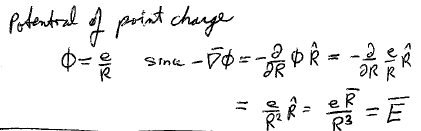 Potential of point charge
ϕ = e/R since −∇̄ϕ = −∂/∂R ϕ R̂ = −∂/∂R e/R R̂
= e/R² R̂ = e R̄/R³ = E̅